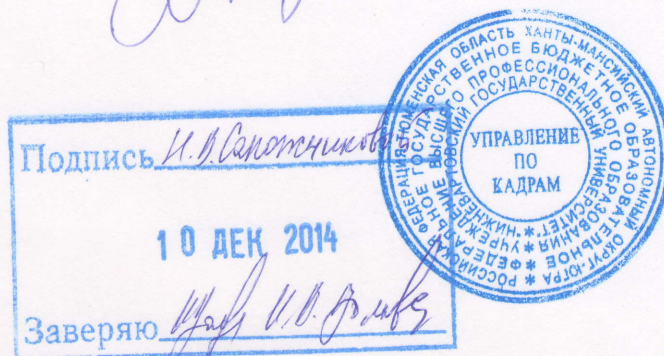 Подпись И.В.Сапожникова
10 ДЕК 2014
Заверяю
РОССИЙСКАЯ ФЕДЕРАЦИЯ * ТЮМЕНСКАЯ ОБЛАСТЬ ХАНТЫ-МАНСИЙСКИЙ АВТОНОМНЫЙ ОКРУГ-ЮГРА *
ФЕДЕРАЛЬНОЕ ГОСУДАРСТВЕННОЕ БЮДЖЕТНОЕ ОБРАЗОВАТЕЛЬНОЕ *
УЧРЕЖДЕНИЕ ВЫСШЕГО ПРОФЕССИОНАЛЬНОГО ОБРАЗОВАНИЯ *
"НИЖНЕВАРТОВСКИЙ ГОСУДАРСТВЕННЫЙ УНИВЕРСИТЕТ" *
УПРАВЛЕНИЕ
ПО
КАДРАМ